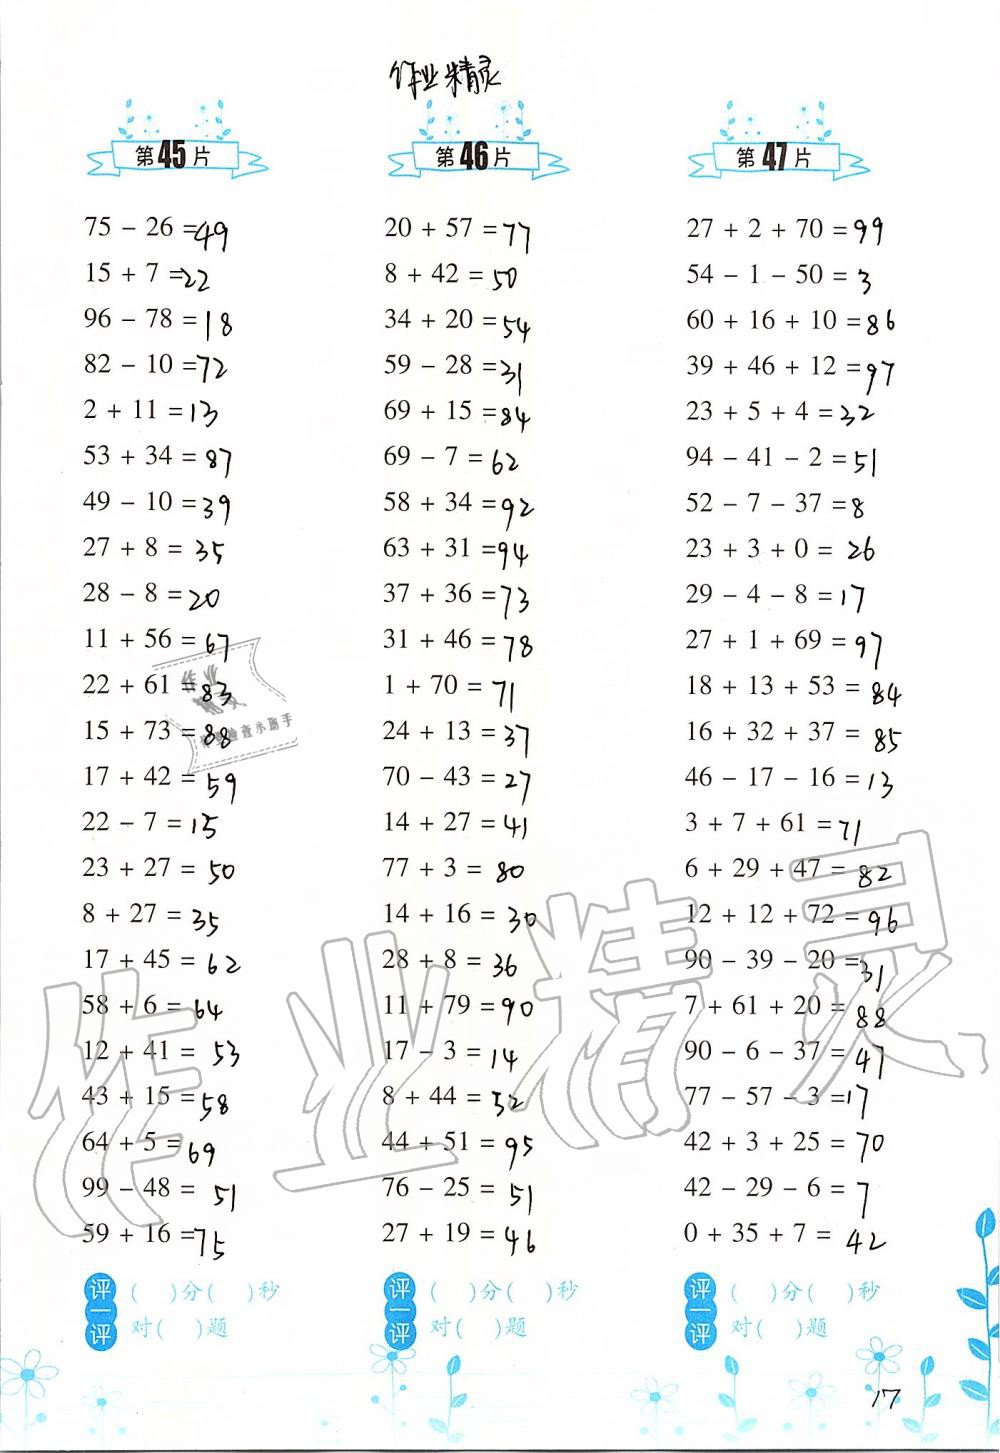 作业精灵
第45片
75 - 26 =49
15 + 7 =22
96 - 78 =18
82 - 10 =72
2 + 11 =13
53 + 34 =87
49 - 10 =39
27 + 8 =35
28 - 8 =20
11 + 56 =67
22 + 61 =83
15 + 73 =88
17 + 42 =59
22 - 7 =15
23 + 27 =50
8 + 27 =35
17 + 45 =62
58 + 6 =64
12 + 41 =53
43 + 15 =58
64 + 5 =69
99 - 48 =51
59 + 16 =75
评一评
( )分( )秒
对( )题
第46片
20 + 57 =77
8 + 42 =50
34 + 20 =54
59 - 28 =31
69 + 15 =84
69 - 7 =62
58 + 34 =92
63 + 31 =94
37 + 36 =73
31 + 46 =78
1 + 70 =71
24 + 13 =37
70 - 43 =27
14 + 27 =41
77 + 3 =80
14 + 16 =30
28 + 8 =36
11 + 79 =90
17 - 3 =14
8 + 44 =52
44 + 51 =95
76 - 25 =51
27 + 19 =46
评一评
( )分( )秒
对( )题
第47片
27 + 2 + 70 =99
54 - 1 - 50 =3
60 + 16 + 10 =86
39 + 46 + 12 =97
23 + 5 + 4 =32
94 - 41 - 2 =51
52 - 7 - 37 =8
23 + 3 + 0 =26
29 - 4 - 8 =17
27 + 1 + 69 =97
18 + 13 + 53 =84
16 + 32 + 37 =85
46 - 17 - 16 =13
3 + 7 + 61 =71
6 + 29 + 47 =82
12 + 12 + 72 =96
90 - 39 - 20 =31
7 + 61 + 20 =88
90 - 6 - 37 =47
77 - 57 - 3 =17
42 + 3 + 25 =70
42 - 29 - 6 =7
0 + 35 + 7 =42
评一评
( )分( )秒
对( )题
17
作业精灵